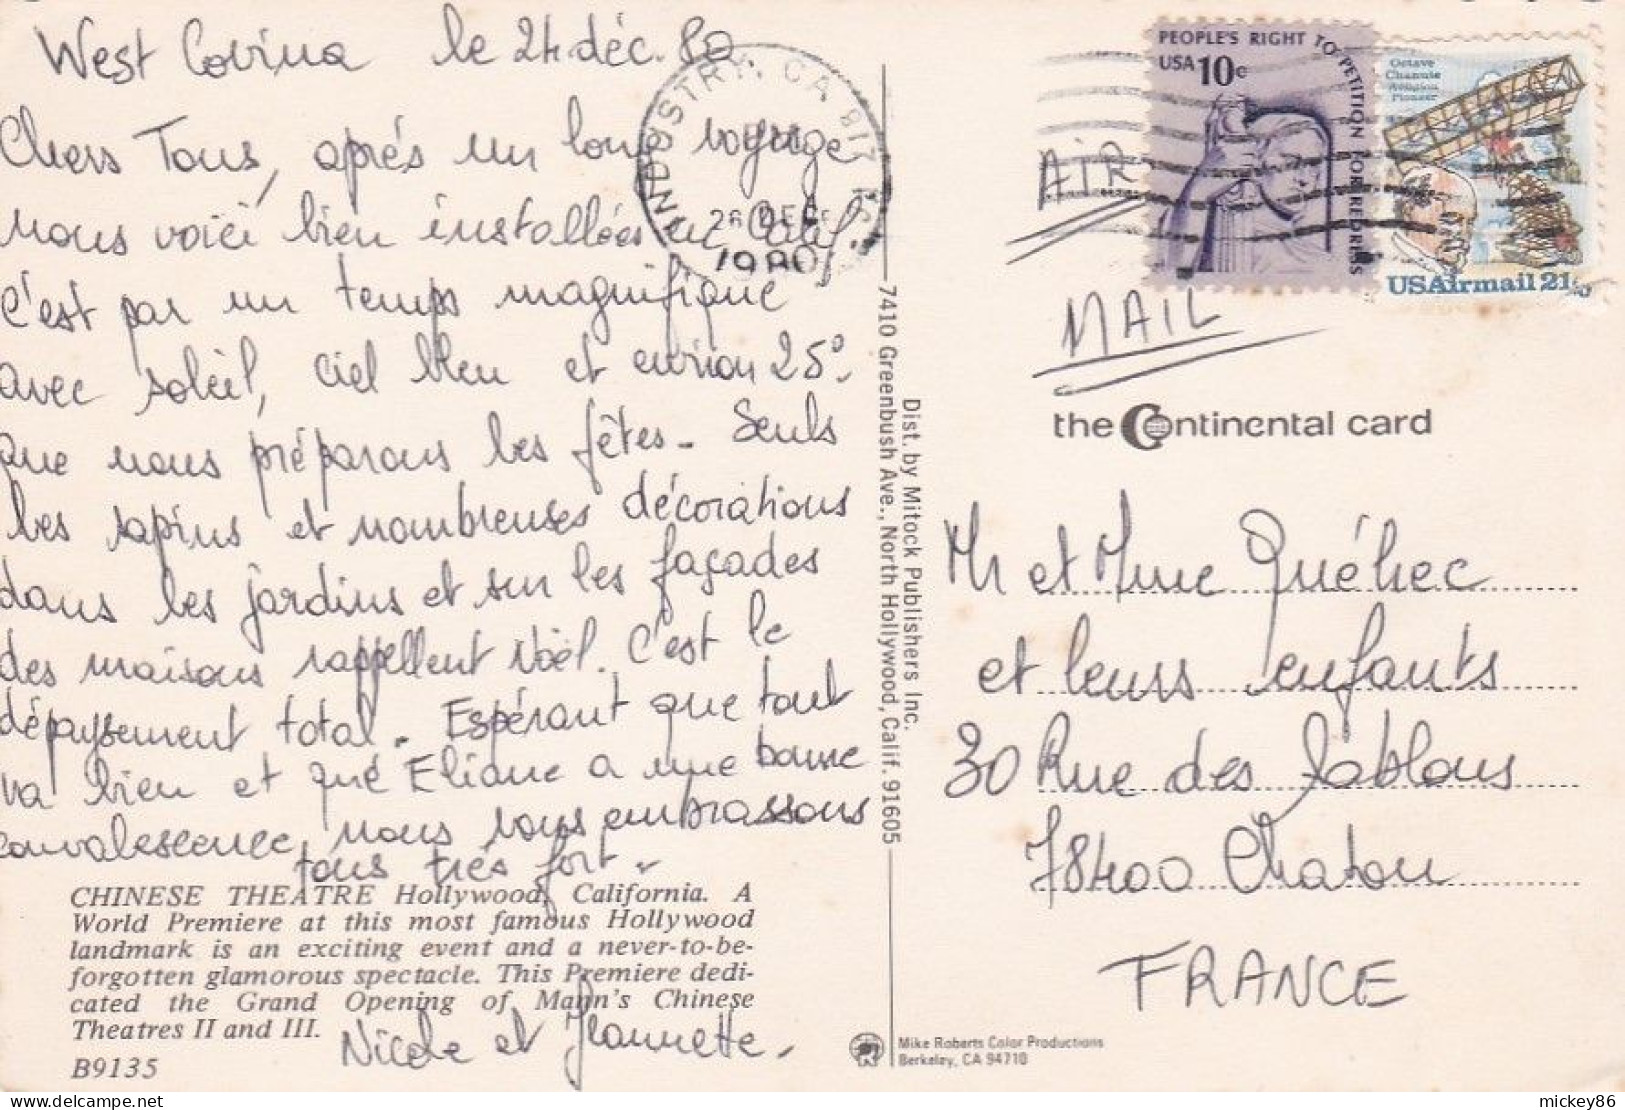 West Covina le 24 déc. 80
Chers Tous, après un long voyage
nous voici bien installées en Calif.
c'est par un temps magnifique
avec soleil, ciel bleu et environ 25°
que nous préparons les fêtes. Seuls
les sapins et nombreuses décorations
dans les jardins et sur les façades
des maisons rappellent Noël. C'est le
dépaysement total. Espérant que tout
va bien et que Eliane a une bonne
convalescence, nous vous embrassons
tous très fort.
Nicole et Jeannette.
CHINESE THEATRE Hollywood, California. A
World Premiere at this most famous Hollywood
landmark is an exciting event and a never-to-be-
forgotten glamorous spectacle. This Premiere dedi-
cated the Grand Opening of Mann's Chinese
Theatres II and III.
B9135
INDUSTRY, CA 917
26 DEC
1980
Dist. by Mitock Publishers Inc.
7410 Greenbush Ave., North Hollywood, Calif. 91605
PEOPLE'S RIGHT TO PETITION FOR REDRESS
USA 10c
Octave
Chanute
Aviation
Pioneer
USAirmail 21c
AIR
MAIL
the Continental card
Mr et Mme Québec
et leurs enfants
30 Rue des Sablons
78400 Chatou
FRANCE
Mike Roberts Color Productions
Berkeley, CA 94710
mickey86